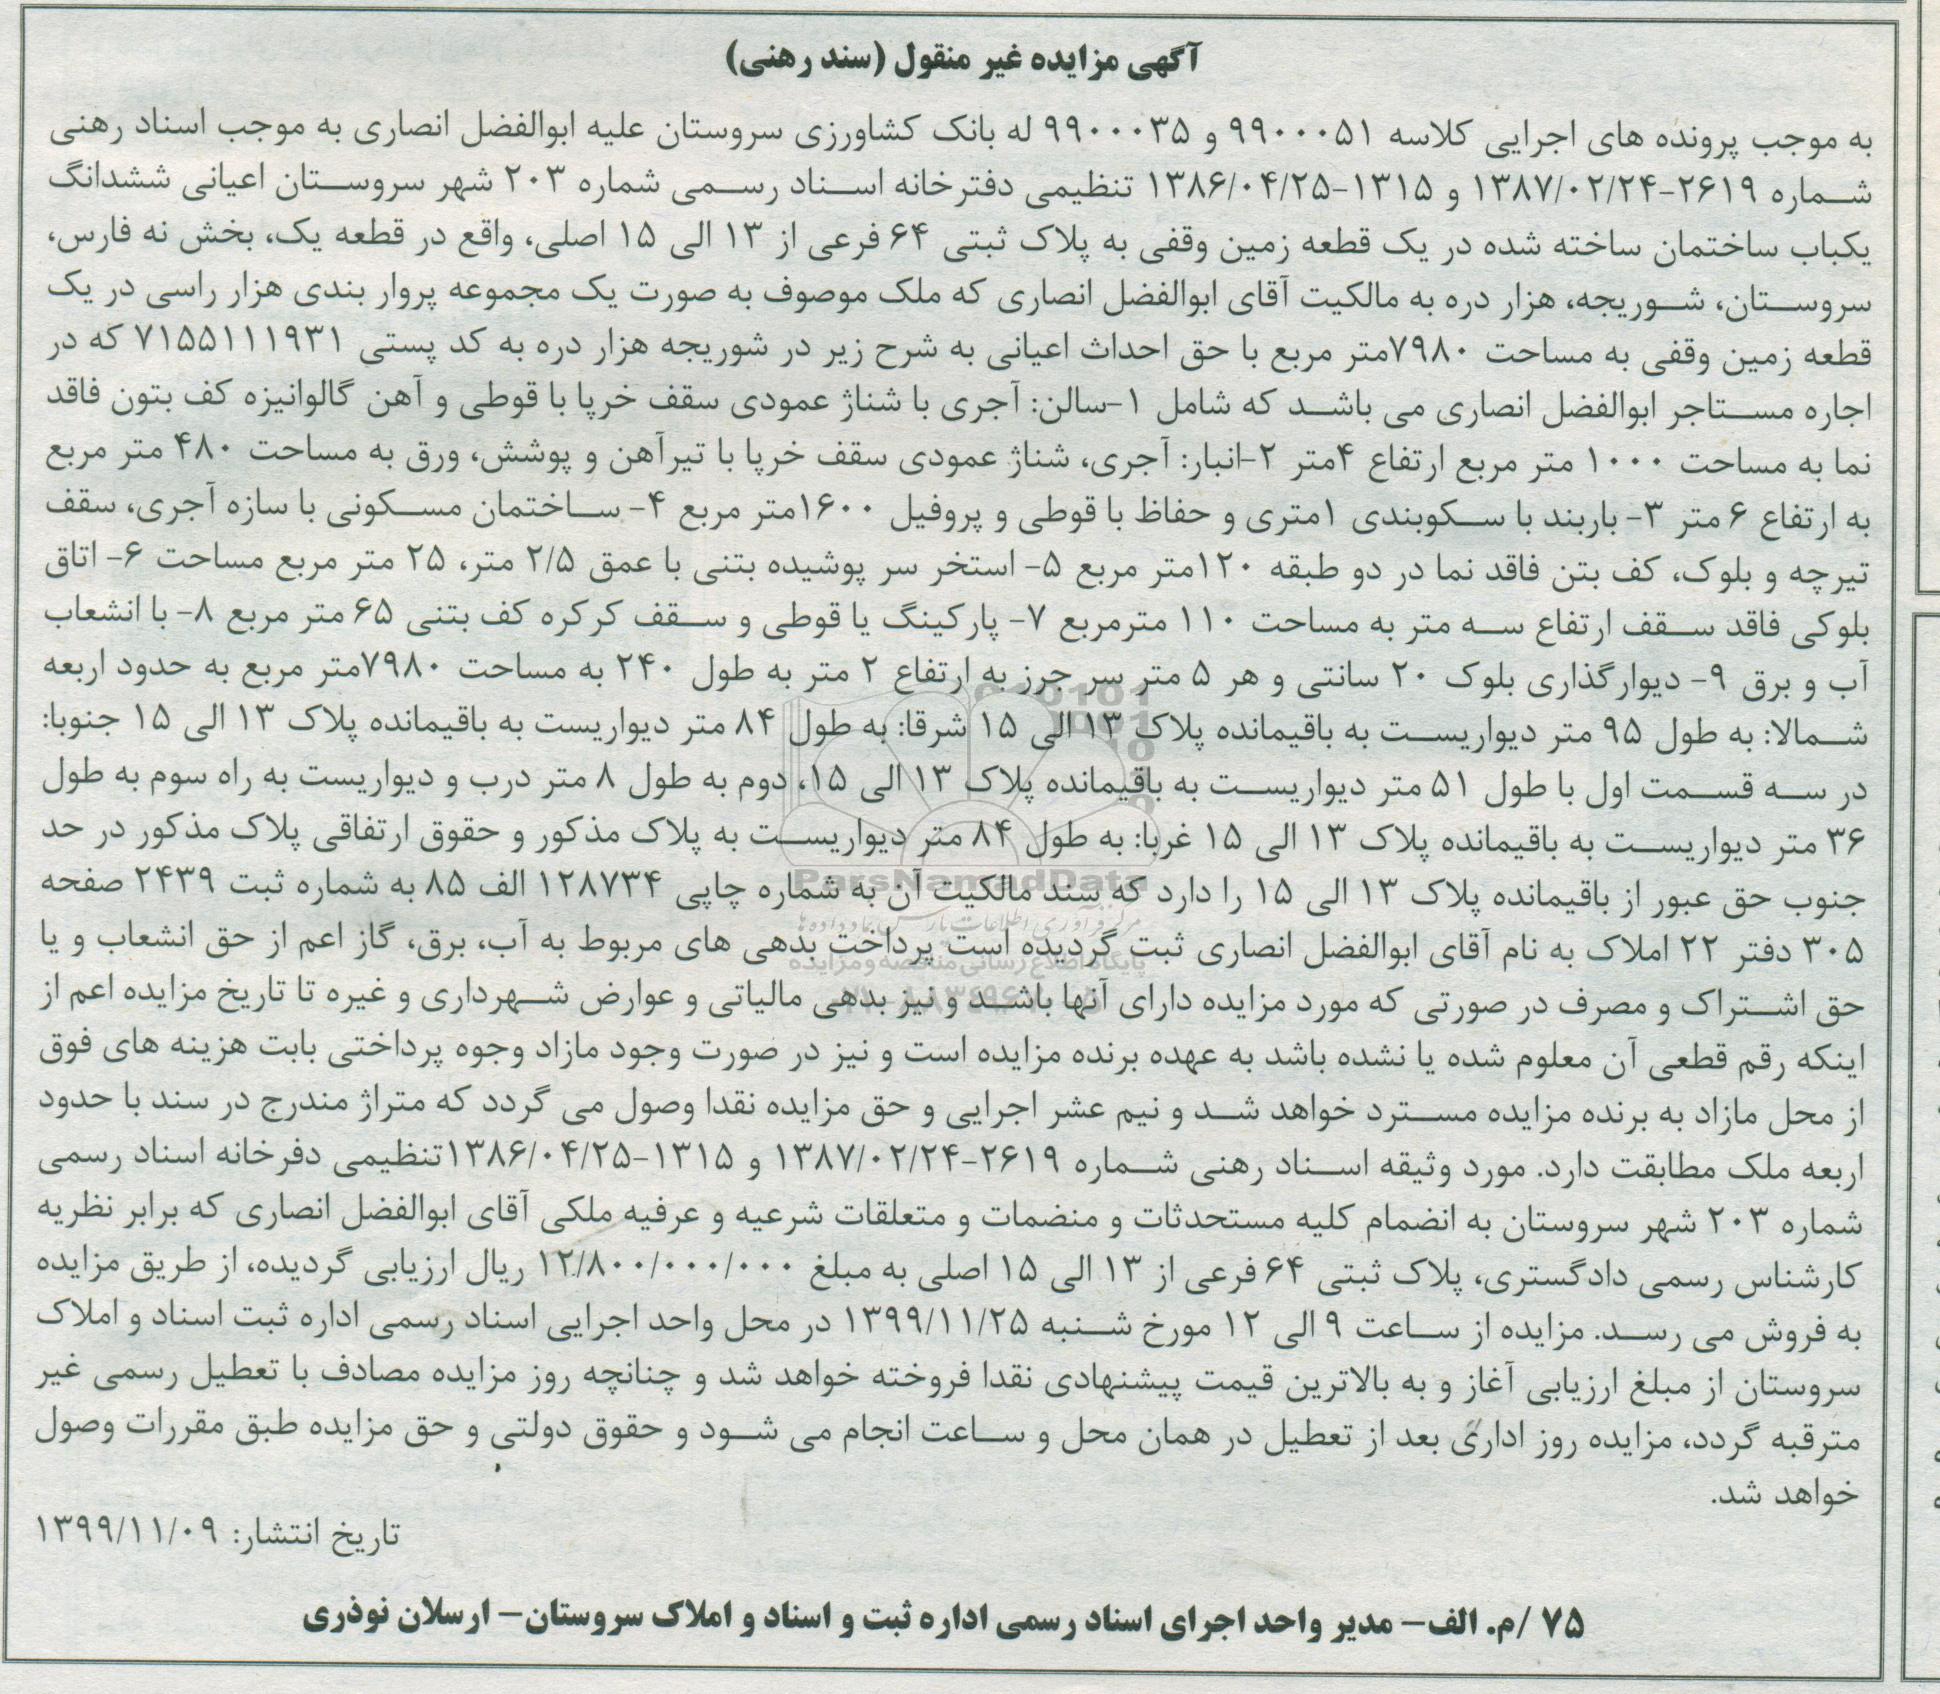 آگهی مزایده غیر منقول (سند رهنی)
به موجب پرونده های اجرایی کلاسه ۹۹۰۰۰۵۱ و ۹۹۰۰۰۳۵ له بانک کشاورزی سروستان علیه ابوالفضل انصاری به موجب اسناد رهنی
شماره ۲۶۱۹-۱۳۸۷/۰۲/۲۴ و ۱۳۱۵-۱۳۸۶/۰۴/۲۵ تنظیمی دفترخانه اسناد رسمی شماره ۲۰۳ شهر سروستان اعیانی ششدانگ
یکباب ساختمان ساخته شده در یک قطعه زمین وقفی به پلاک ثبتی ۶۴ فرعی از ۱۳ الی ۱۵ اصلی، واقع در قطعه یک، بخش نه فارس،
سروستان، شوریجه، هزار دره به مالکیت آقای ابوالفضل انصاری که ملک موصوف به صورت یک مجموعه پروار بندی هزار راسی در یک
قطعه زمین وقفی به مساحت ۷۹۸۰متر مربع با حق احداث اعیانی به شرح زیر در شوریجه هزار دره به کد پستی ۷۱۵۵۱۱۱۹۳۱ که در
اجاره مستاجر ابوالفضل انصاری می باشد که شامل ۱-سالن: آجری با شناژ عمودی سقف خرپا با قوطی و آهن گالوانیزه کف بتون فاقد
نما به مساحت ۱۰۰۰ متر مربع ارتفاع ۴متر ۲-انبار: آجری، شناژ عمودی سقف خرپا با تیرآهن و پوشش، ورق به مساحت ۴۸۰ متر مربع
به ارتفاع ۶ متر ۳- باربند با سکوبندی ۱متری و حفاظ با قوطی و پروفیل ۱۶۰۰متر مربع ۴- ساختمان مسکونی با سازه آجری، سقف
تیرچه و بلوک، کف بتن فاقد نما در دو طبقه ۱۲۰متر مربع ۵- استخر سر پوشیده بتنی با عمق ۲/۵ متر، ۲۵ متر مربع مساحت ۶- اتاق
بلوکی فاقد سقف ارتفاع سه متر به مساحت ۱۱۰ مترمربع ۷- پارکینگ یا قوطی و سقف کرکره کف بتنی ۶۵ متر مربع ۸- با انشعاب
آب و برق ۹- دیوارگذاری بلوک ۲۰ سانتی و هر ۵ متر سر جرز به ارتفاع ۲ متر به طول ۲۴۰ به مساحت ۷۹۸۰متر مربع به حدود اربعه
شمالا: به طول ۹۵ متر دیواریست به باقیمانده پلاک ۱۳ الی ۱۵ شرقا: به طول ۸۴ متر دیواریست به باقیمانده پلاک ۱۳ الی ۱۵ جنوبا:
در سه قسمت اول با طول ۵۱ متر دیواریست به باقیمانده پلاک ۱۳ الی ۱۵، دوم به طول ۸ متر درب و دیواریست به راه سوم به طول
۳۶ متر دیواریست به باقیمانده پلاک ۱۳ الی ۱۵ غربا: به طول ۸۴ متر دیواریست به پلاک مذکور و حقوق ارتفاقی پلاک مذکور در حد
جنوب حق عبور از باقیمانده پلاک ۱۳ الی ۱۵ را دارد که سند مالکیت آن به شماره چاپی ۱۲۸۷۳۴ الف ۸۵ به شماره ثبت ۲۴۳۹ صفحه
۳۰۵ دفتر ۲۲ املاک به نام آقای ابوالفضل انصاری ثبت گردیده است پرداخت بدهی های مربوط به آب، برق، گاز اعم از حق انشعاب و یا
حق اشتراک و مصرف در صورتی که مورد مزایده دارای آنها باشد و نیز بدهی مالیاتی و عوارض شهرداری و غیره تا تاریخ مزایده اعم از
اینکه رقم قطعی آن معلوم شده یا نشده باشد به عهده برنده مزایده است و نیز در صورت وجود مازاد وجوه پرداختی بابت هزینه های فوق
از محل مازاد به برنده مزایده مسترد خواهد شد و نیم عشر اجرایی و حق مزایده نقدا وصول می گردد که متراژ مندرج در سند با حدود
اربعه ملک مطابقت دارد. مورد وثیقه اسناد رهنی شماره ۲۶۱۹-۱۳۸۷/۰۲/۲۴ و ۱۳۱۵-۱۳۸۶/۰۴/۲۵تنظیمی دفرخانه اسناد رسمی
شماره ۲۰۳ شهر سروستان به انضمام کلیه مستحدثات و منضمات و متعلقات شرعیه و عرفیه ملکی آقای ابوالفضل انصاری که برابر نظریه
کارشناس رسمی دادگستری، پلاک ثبتی ۶۴ فرعی از ۱۳ الی ۱۵ اصلی به مبلغ ۱۲/۸۰۰/۰۰۰/۰۰۰ ریال ارزیابی گردیده، از طریق مزایده
به فروش می رسد. مزایده از ساعت ۹ الی ۱۲ مورخ شنبه ۱۳۹۹/۱۱/۲۵ در محل واحد اجرایی اسناد رسمی اداره ثبت اسناد و املاک
سروستان از مبلغ ارزیابی آغاز و به بالاترین قیمت پیشنهادی نقدا فروخته خواهد شد و چنانچه روز مزایده مصادف با تعطیل رسمی غیر
مترقبه گردد، مزایده روز اداری بعد از تعطیل در همان محل و ساعت انجام می شود و حقوق دولتی و حق مزایده طبق مقررات وصول
خواهد شد.
تاریخ انتشار: ۱۳۹۹/۱۱/۰۹
۷۵ /م. الف- مدیر واحد اجرای اسناد رسمی اداره ثبت و اسناد و املاک سروستان- ارسلان نوذری
ParsNamadData
پایگاه اطلاع رسانی مناقصه و مزایده